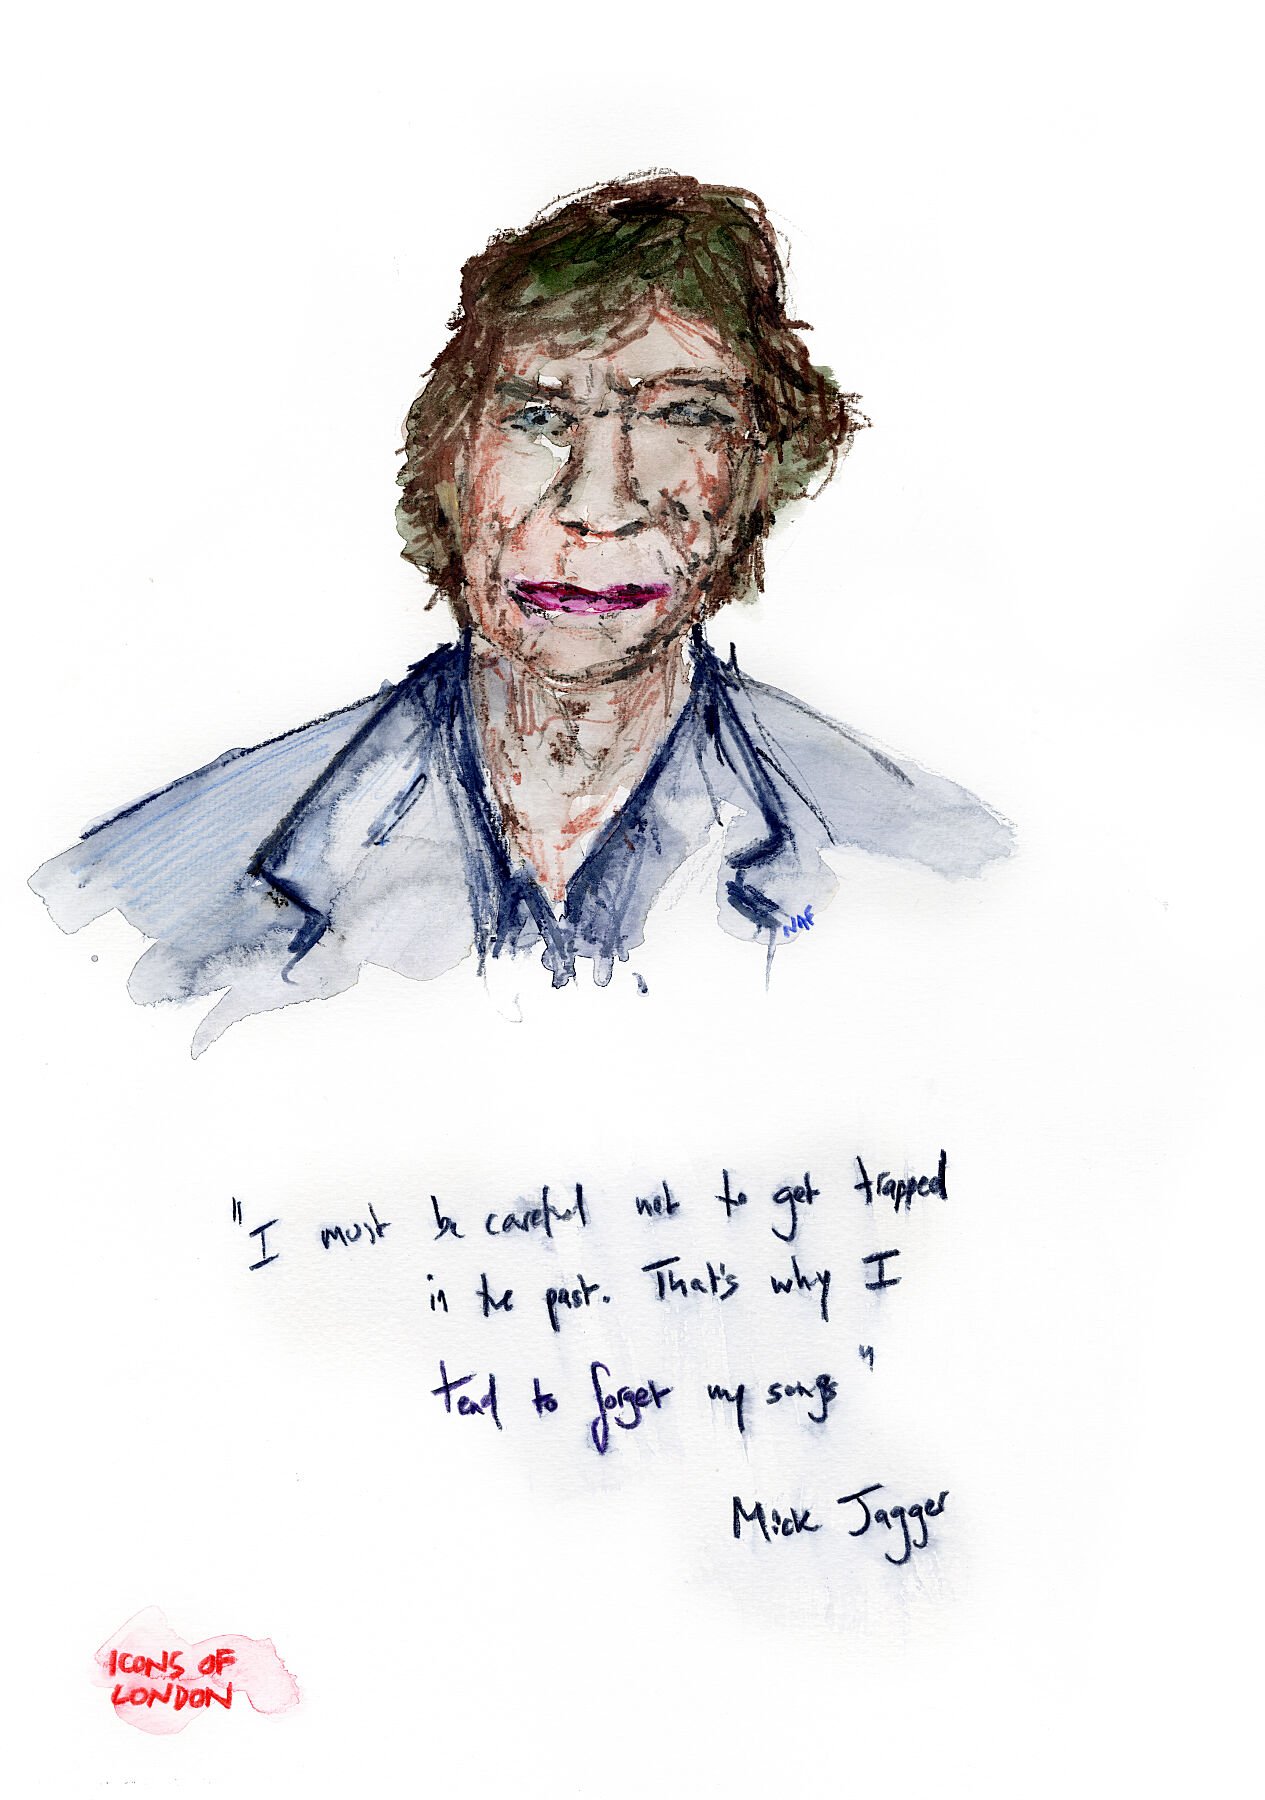 NAF
"I must be careful not to get trapped
in the past. That's why I
tend to forget my songs"
Mick Jagger
ICONS OF
LONDON